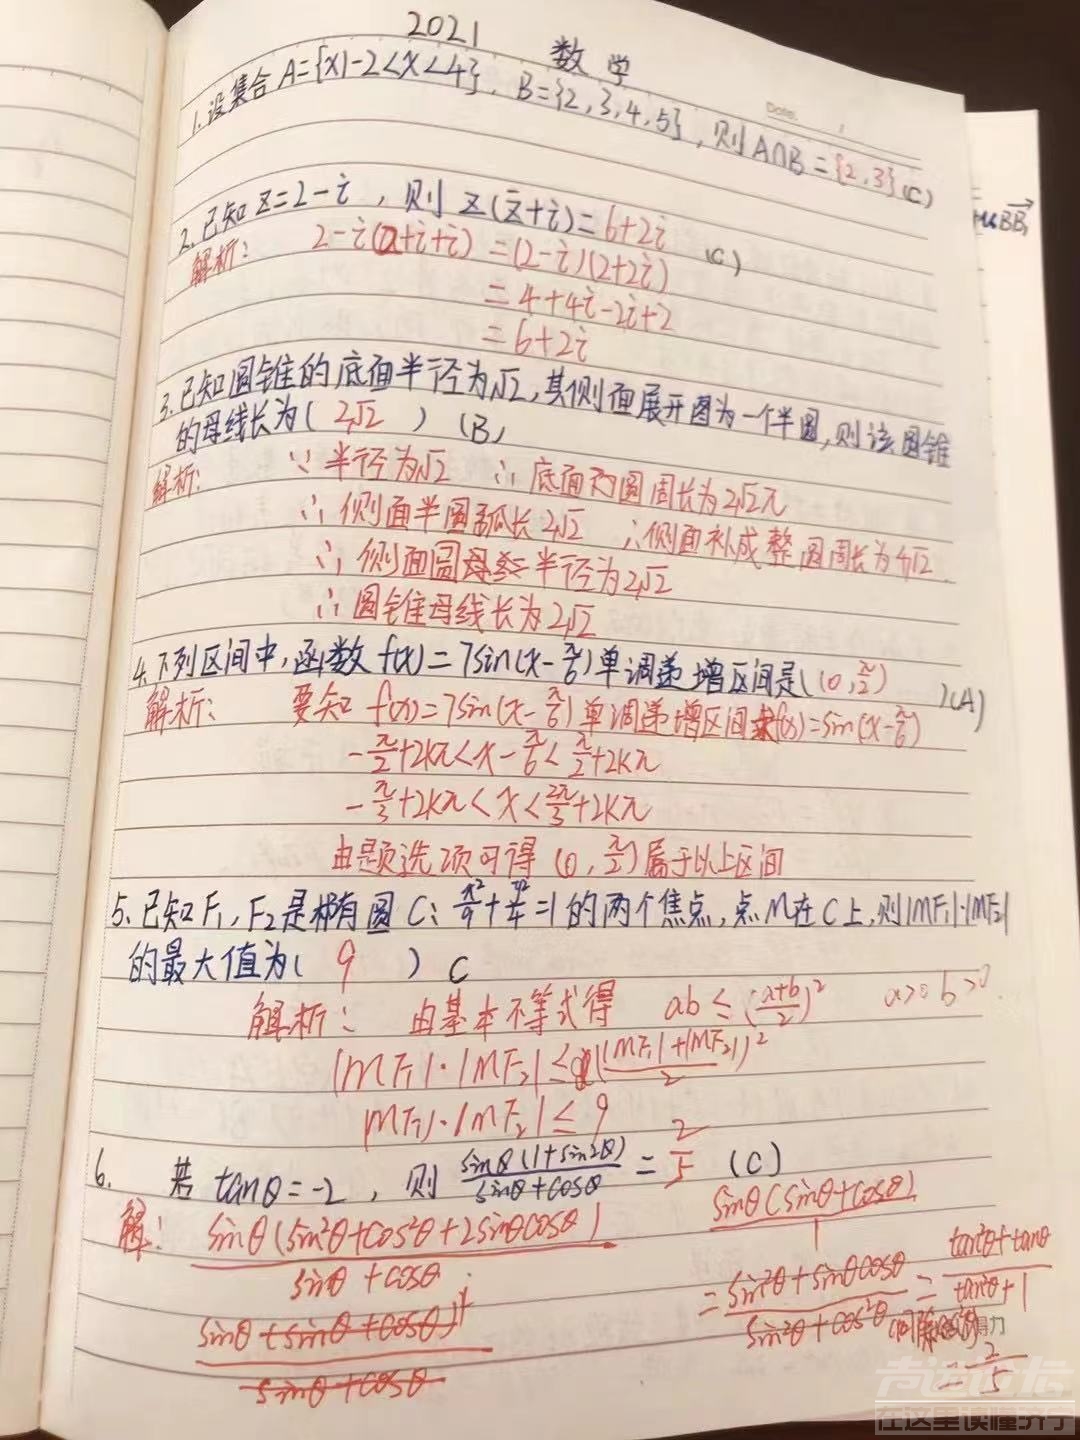 2021 数学
Date.
1.设集合A={x|-2<x<4}，B={2,3,4,5}，则A∩B={2,3}(C)
2.已知z=2-i，则z(z̅+i)=6+2i (C)
解析: 2-i(2+i+i)=(2-i)(2+2i)
=4+4i-2i+2
=6+2i
BB₁
3.已知圆锥的底面半径为√2,其侧面展开图为一个半圆,则该圆锥
的母线长为( 2√2 ) (B)
解析: ∵半径为√2 ∴底面的圆周长为2√2π
∴侧面半圆弧长2√2 ∴侧面补成整圆周长为4√2.
∴侧面圆半径为2√2
∴圆锥母线长为2√2
4.下列区间中,函数f(x)=7sin(x-π/6)单调递增区间是((0,π/2) )(A)
解析: 要知f(x)=7sin(x-π/6)单调递增区间求f(x)=sin(x-π/6)
-π/2+2kπ<x-π/6<π/2+2kπ
-π/3+2kπ<x<2π/3+2kπ
由题选项可得(0,π/2)属于以上区间
5.已知F₁,F₂是椭圆C:x²/9+y²/4=1的两个焦点,点M在C上,则|MF₁|·|MF₂|
的最大值为( 9 ) C
解析: 由基本不等式得 ab≤(a+b/2)² a>0 b>0.
|MF₁|·|MF₂|≤(|MF₁|+|MF₂|/2)²
|MF₁|·|MF₂|≤9
6. 若tanθ=-2，则sinθ(1+sin2θ)/sinθ+cosθ=2/5 (C)
解: sinθ(sin²θ+cos²θ+2sinθcosθ)/sinθ+cosθ
sinθ(sinθ+cosθ)/1
=sin²θ+sinθcosθ/sin²θ+cos²θ=tan²θ+tanθ/tan²θ+1
sinθ(sinθ+cosθ)²/sinθ+cosθ
=2/5
得力
在这里读懂济宁